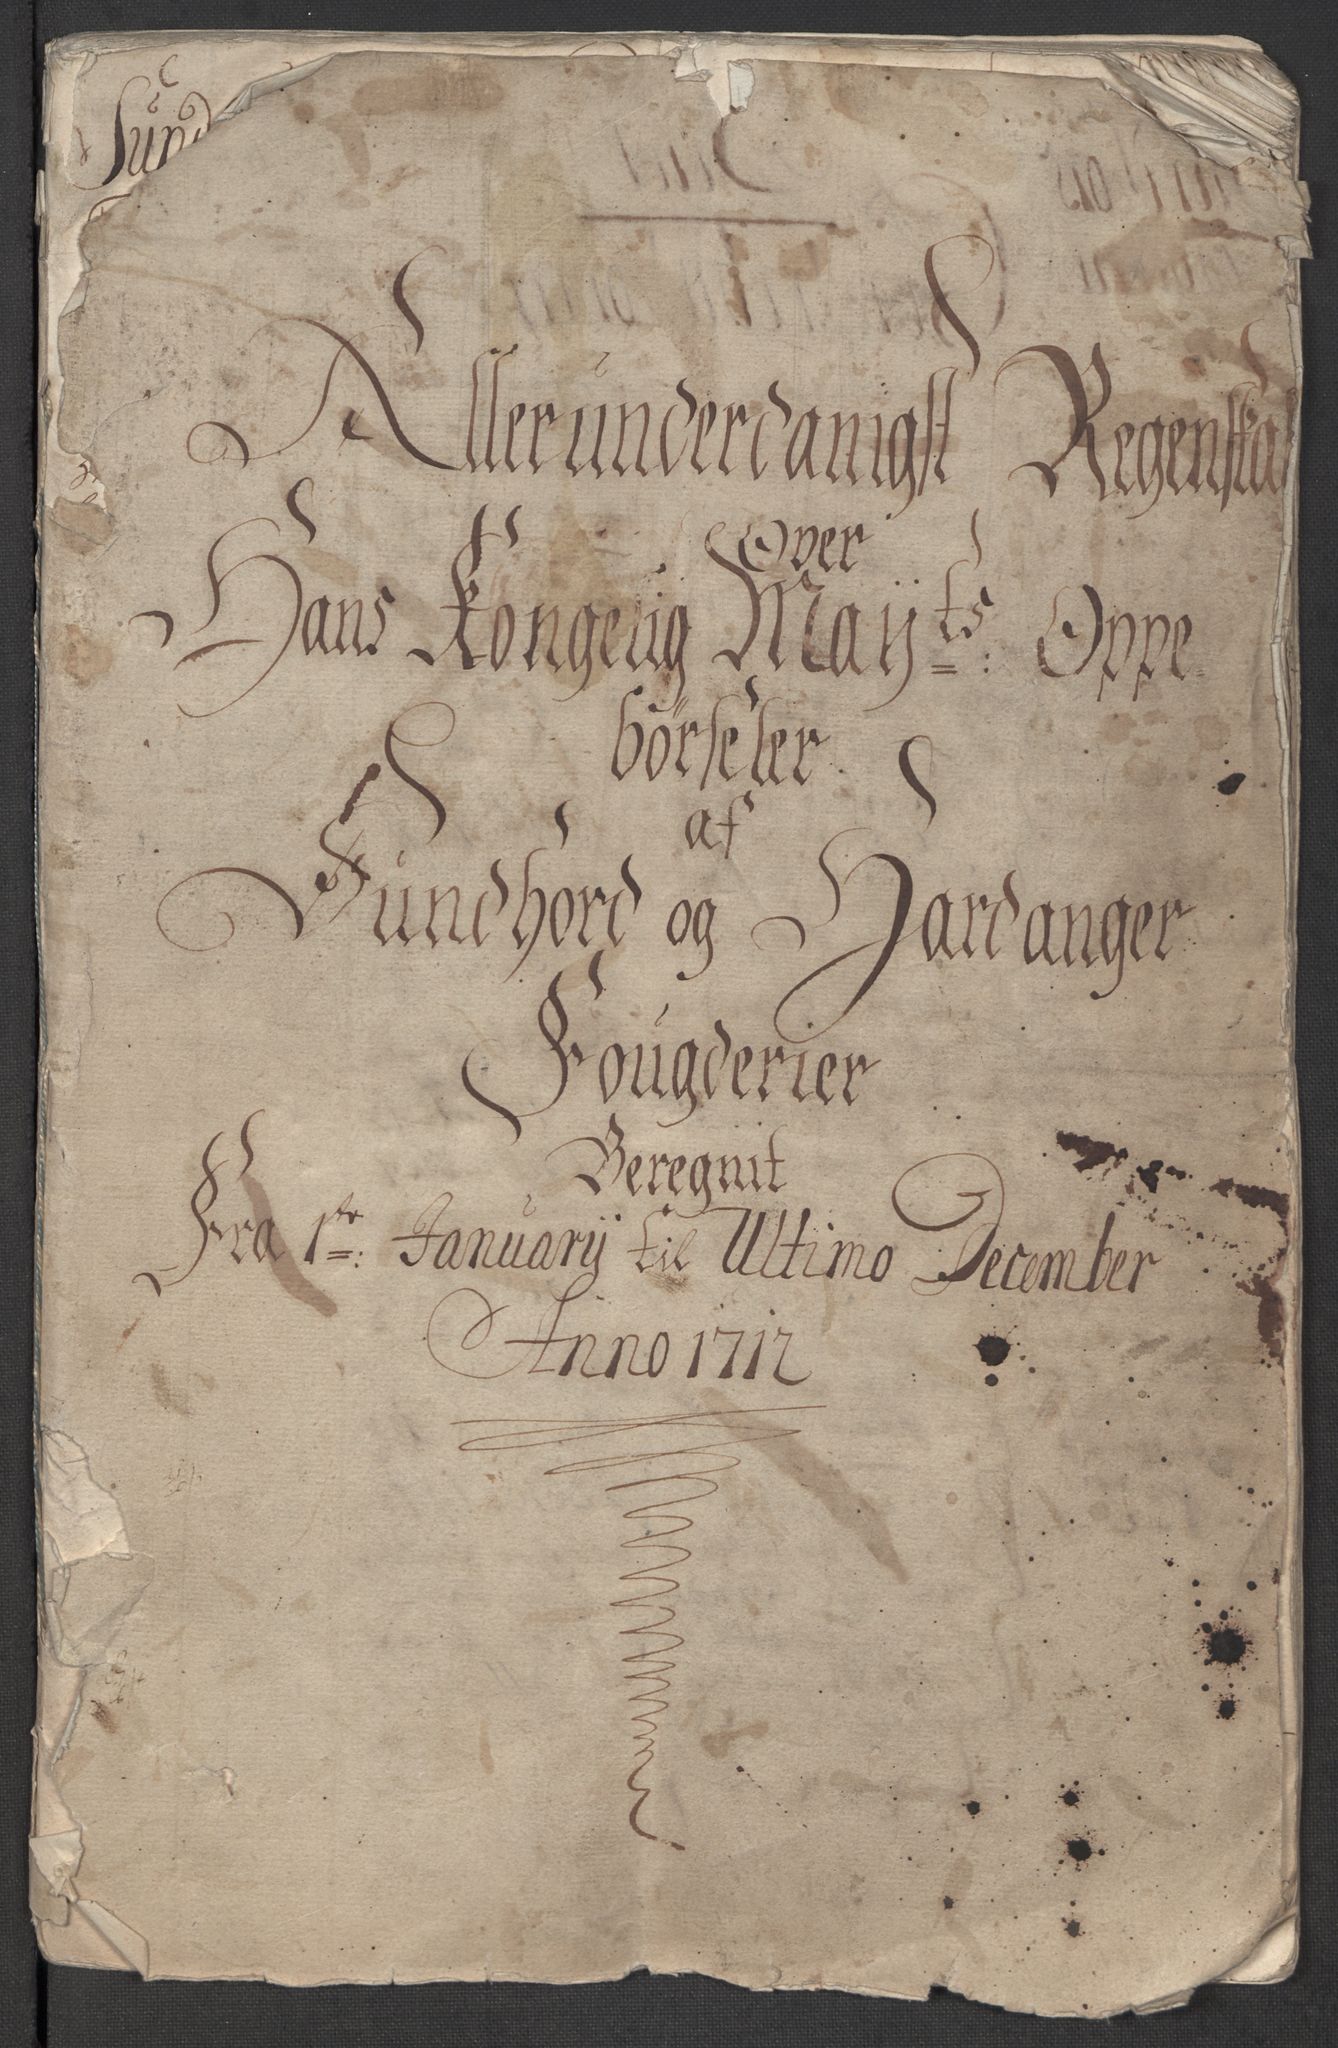 Sund
Allerunderdanigst Regenskab
Over
Hans Kongelig Maÿts: Oppe
börseler
af
Sundhord og Hardanger
Fougderier
Beregnit
Fra 1te: Januarij til Ultimo December
Anno 1712